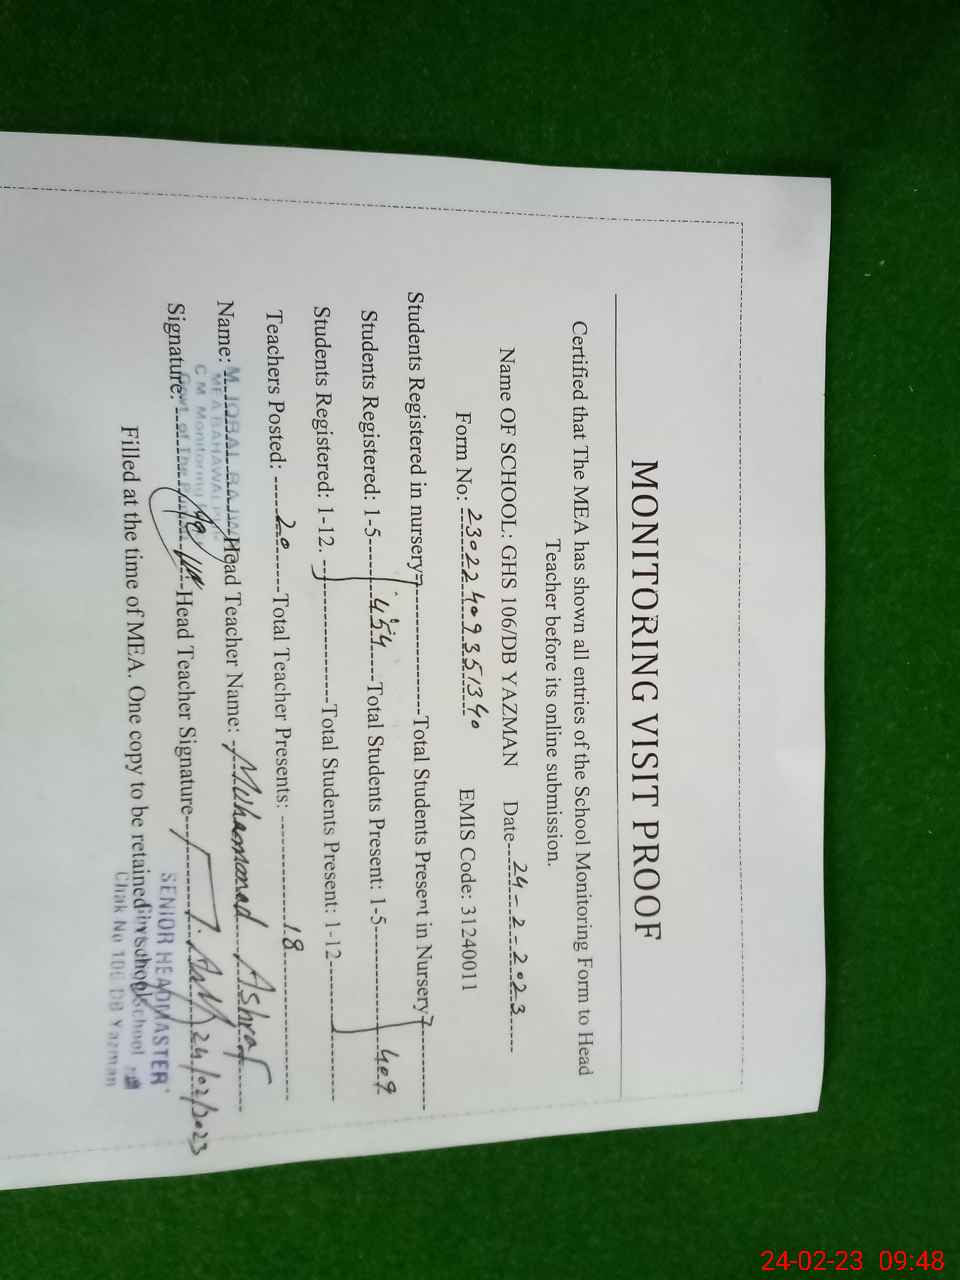 MONITORING VISIT PROOF
Certified that The MEA has shown all entries of the School Monitoring Form to Head
Teacher before its online submission.
Name OF SCHOOL: GHS 106/DB YAZMAN Date 24-2-2023
Form No: 23022409351340 EMIS Code: 31240011
Students Registered in nursery Total Students Present in Nursery
Students Registered: 1-5 454 Total Students Present: 1-5 409
Students Registered: 1-12. Total Students Present: 1-12
Teachers Posted: 20 Total Teacher Presents: 18
Name: M. IQBAL BAJWA Head Teacher Name: Muhammad Ashraf
MEA BAHAWALPUR
C M Monitoring
Govt of The
Signature: Head Teacher Signature 24/02/2023
Filled at the time of MEA. One copy to be retained in school
SENIOR HEADMASTER
School
Chak No 106 DB Yazman
24-02-23 09:48